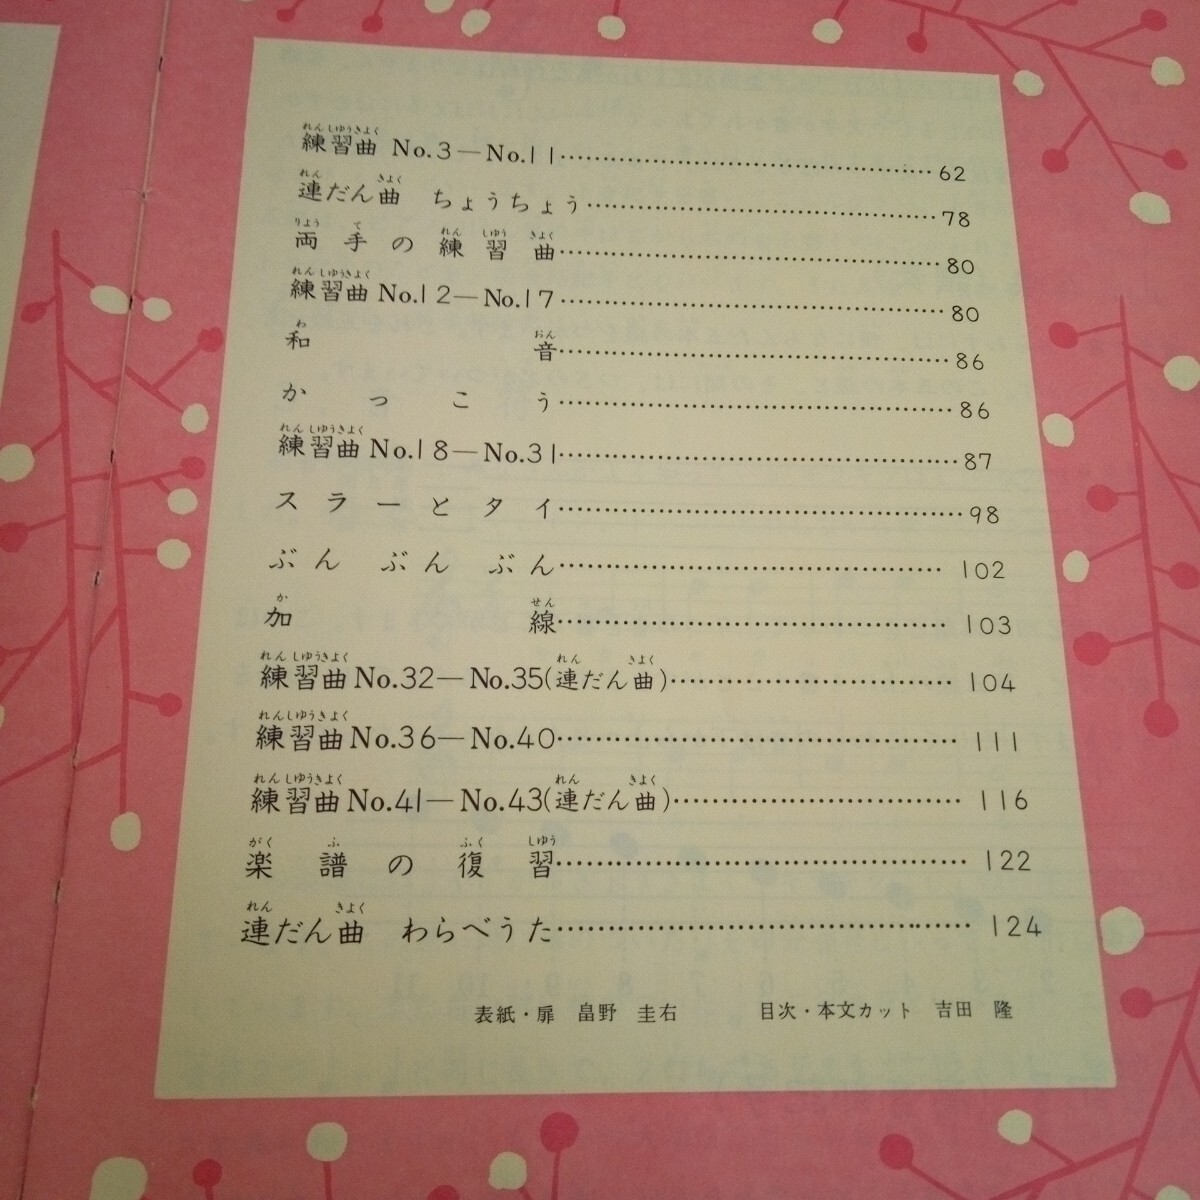 練習曲 No.3—No.11 62
連だん曲 ちょうちょう 78
両手の練習曲 80
練習曲 No.12—No.17 80
和音 86
かっこう 86
練習曲 No.18—No.31 87
スラーとタイ 98
ぶんぶんぶん 102
加線 103
練習曲 No.32—No.35(連だん曲) 104
練習曲 No.36—No.40 111
練習曲 No.41—No.43(連だん曲) 116
楽譜の復習 122
連だん曲 わらべうた 124
表紙・扉 畠野 圭右 目次・本文カット 吉田 隆